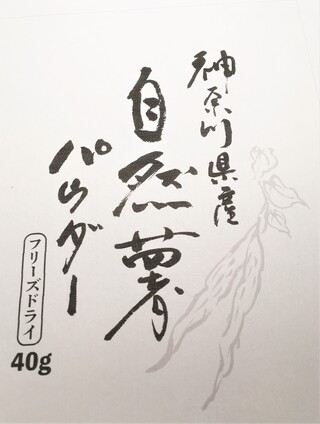 神奈川県産
自然薯
パウダー
フリーズドライ
40g